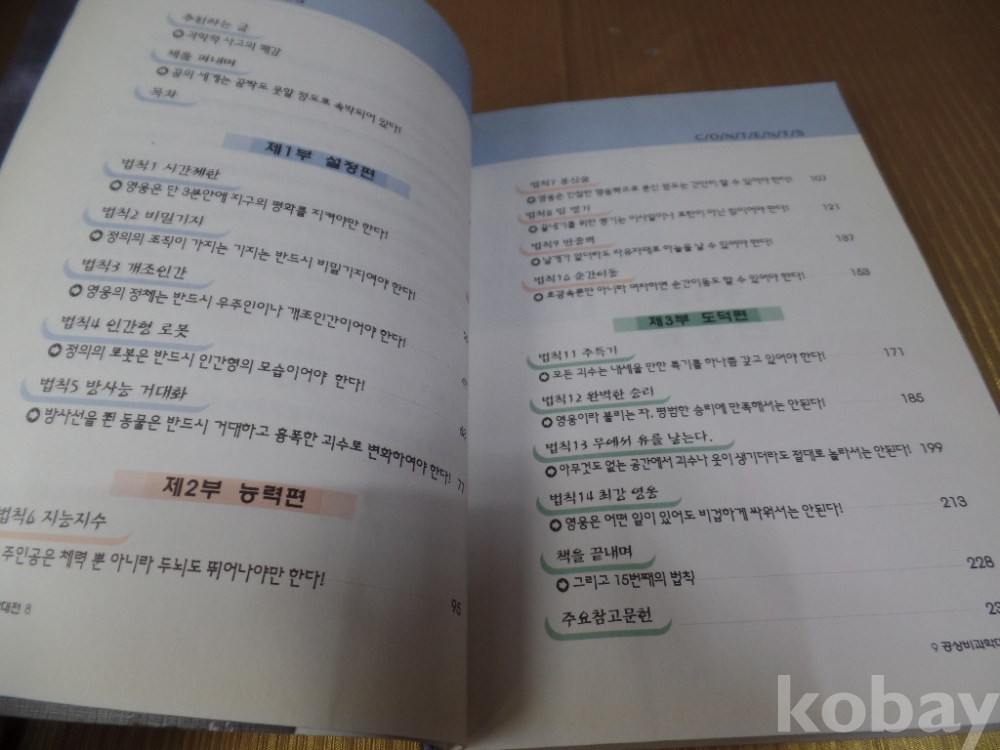 추천하는 글
과학적 사고의 쾌감
책을 펴내며
꿈의 세계는 꼼짝도 못할 정도로 속박되어 있다!
목차
제1부 설정편
법칙1 시간제한
영웅은 단 3분안에 지구의 평화를 지켜야만 한다!
법칙2 비밀기지
정의의 조직이 가지는 기지는 반드시 비밀기지여야 한다!
법칙3 개조인간
영웅의 정체는 반드시 우주인이나 개조인간이어야 한다!
법칙4 인간형 로봇
정의의 로봇은 반드시 인간형의 모습이어야 한다!
법칙5 방사능 거대화
방사선을 쬔 동물은 반드시 거대하고 흉폭한 괴수로 변화하여야 한다! 71
제2부 능력편
법칙6 지능지수
주인공은 체력 뿐 아니라 두뇌도 뛰어나야만 한다! 95
대전 8
C/O/N/T/E/N/T/S
법칙7 분신술
107
법칙8
121
법칙9 반중력
날개가 없더라도 자유자재로 하늘을 날 수 있어야 한다! 137
법칙10 순간이동
초광속뿐만 아니라 여차하면 순간이동도 할 수 있어야 한다! 153
제3부 도덕편
법칙11 주특기
모든 괴수는 내세울 만한 특기를 하나쯤 갖고 있어야 한다! 171
법칙12 완벽한 승리
영웅이라 불리는 자, 평범한 승리에 만족해서는 안된다! 185
법칙13 무에서 유를 낳는다.
아무것도 없는 공간에서 괴수나 옷이 생기더라도 절대로 놀라서는 안된다! 199
법칙14 최강 영웅
영웅은 어떤 일이 있어도 비겁하게 싸워서는 안된다! 213
책을 끝내며
그리고 15번째의 법칙 228
주요참고문헌 23
9 공상비과학대
kobay